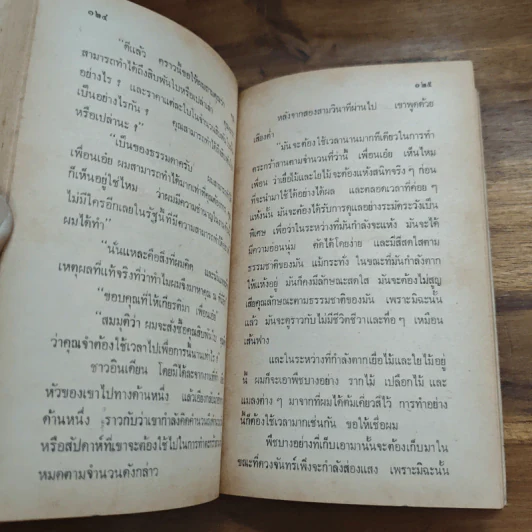 ๑๒๔
"ดีแล้ว คราวนี้ขอให้
สามารถทำได้ถึงสิบพันใบหรือเปล่าเล่า
อย่างไร ? และราคาแต่ละใบในจำนวน
เป็นอย่างไรกัน ? คุณสามารถทำได้
หรือเปล่านะ ?"
"เป็นของธรรมดาครับ
เพื่อนเอ๋ย ผมสามารถทำได้มากเท่าที่คุณต้องการ
ก็เห็นอยู่ใช่ไหม ว่าผมมีความชำนาญ
ไม่มีใครอีกเลยในรัฐนี้ที่มีความสามารถ
ผมได้ทำ"
"นั่นแหละคือสิ่งที่ผมคิด และ
เหตุผลที่แท้จริงที่ว่าทำไมผมจึงมาหาคุณ ณ ที่นี้
"ขอบคุณที่ให้เกียรติมา เพื่อนเอ๋ย"
"สมมุติว่า ผมจะสั่งซื้อคุณสิบพันใบ
ว่าคุณจำต้องใช้เวลาไปเพื่อการนี้นานเท่าไร ?"
ชาวอินเดียน โดยมิได้ละจากงานที่ทำ
หัวของเขาไปทางด้านหนึ่ง แล้วเอียงกลับมา
ด้านหนึ่ง ราวกับว่าเขากำลังคิดคำนวณถึง
หรือสัปดาห์ที่เขาจะต้องใช้ไปในการทำตะกร้า
หมดตามจำนวนดังกล่าว
๑๒๕
หลังจากสองสามวินาทีผ่านไป เขาพูดด้วย
เสียงต่ำ
"มันจะต้องใช้เวลานานมากทีเดียวในการทำ
ตะกร้าสานตามจำนวนที่ว่านี้ เพื่อนเอ๋ย เห็นไหม
เพื่อน ว่าเยื่อไม้และใยไม้จะต้องแห้งสนิทจริง ๆ ก่อน
ที่จะนำมาใช้ได้อย่างได้ผล และตลอดเวลาที่ค่อย ๆ
แห้งนั้น มันจะต้องได้รับการดูแลอย่างระมัดระวังเป็น
พิเศษ เพื่อว่าในระหว่างที่มันกำลังจะแห้ง มันจะได้
มีความอ่อนนุ่ม ดัดได้โดยง่าย และมีสีสดใสตาม
ธรรมชาติของมัน แม้กระทั่ง ในขณะที่มันกำลังตาก
ให้แห้งอยู่ มันก็คงมีลักษณะสดใส มันจะต้องไม่สูญ
เสียคุณลักษณะตามธรรมชาติของมัน เพราะมิฉะนั้น
แล้ว มันจะดูราวกับไม่มีชีวิตชีวาและทื่อ ๆ เหมือน
เส้นฟาง
และในระหว่างที่กำลังตากเยื่อไม้และใยไม้อยู่
นี้ ผมก็จะเอาพืชบางอย่าง รากไม้ เปลือกไม้ และ
แมลงต่าง ๆ มาจากที่ผมได้ต้มเคี่ยวสีไว้ การทำอย่าง
นี้ก็ต้องใช้เวลามากเช่นกัน ขอให้เชื่อผม
พืชบางอย่างที่เก็บเอามานั้นจะต้องเก็บมาใน
ขณะที่ดวงจันทร์เพ็งจะกำลังส่องแสง เพราะมิฉะนั้น